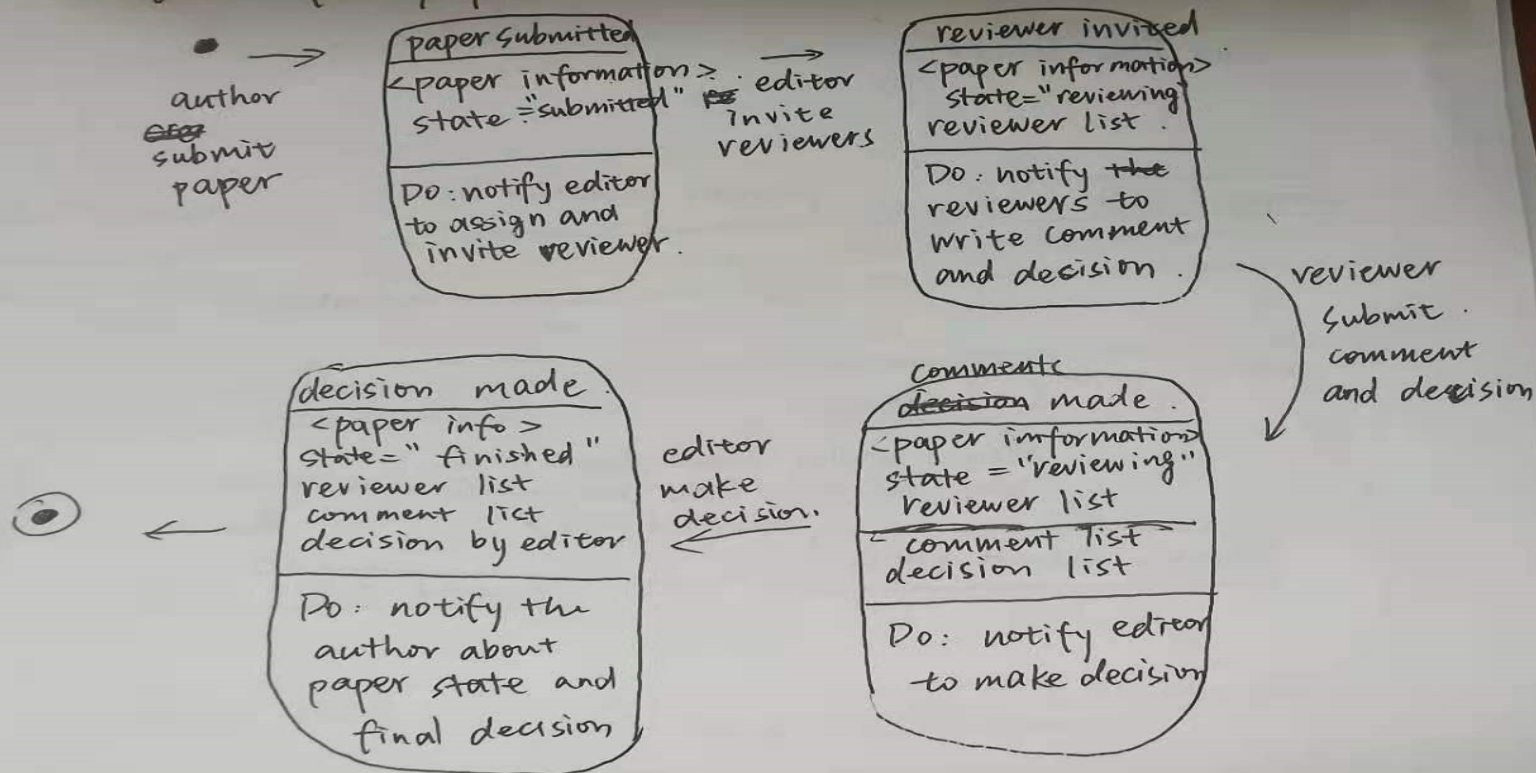 author
submit
paper
paper submitted
<paper information>
state="submitted"
Do: notify editor
to assign and
invite reviewer.
editor
invite
reviewers
reviewer invited
<paper information>
state="reviewing"
reviewer list.
Do: notify the
reviewers to
write comment
and decision.
reviewer
submit.
comment
and decision
comments
decision made.
<paper information>
state = "reviewing"
reviewer list
comment list
decision list
Do: notify editor
to make decision
editor
make
decision.
decision made.
<paper info>
state="finished"
reviewer list
comment list
decision by editor
Do: notify the
author about
paper state and
final decision